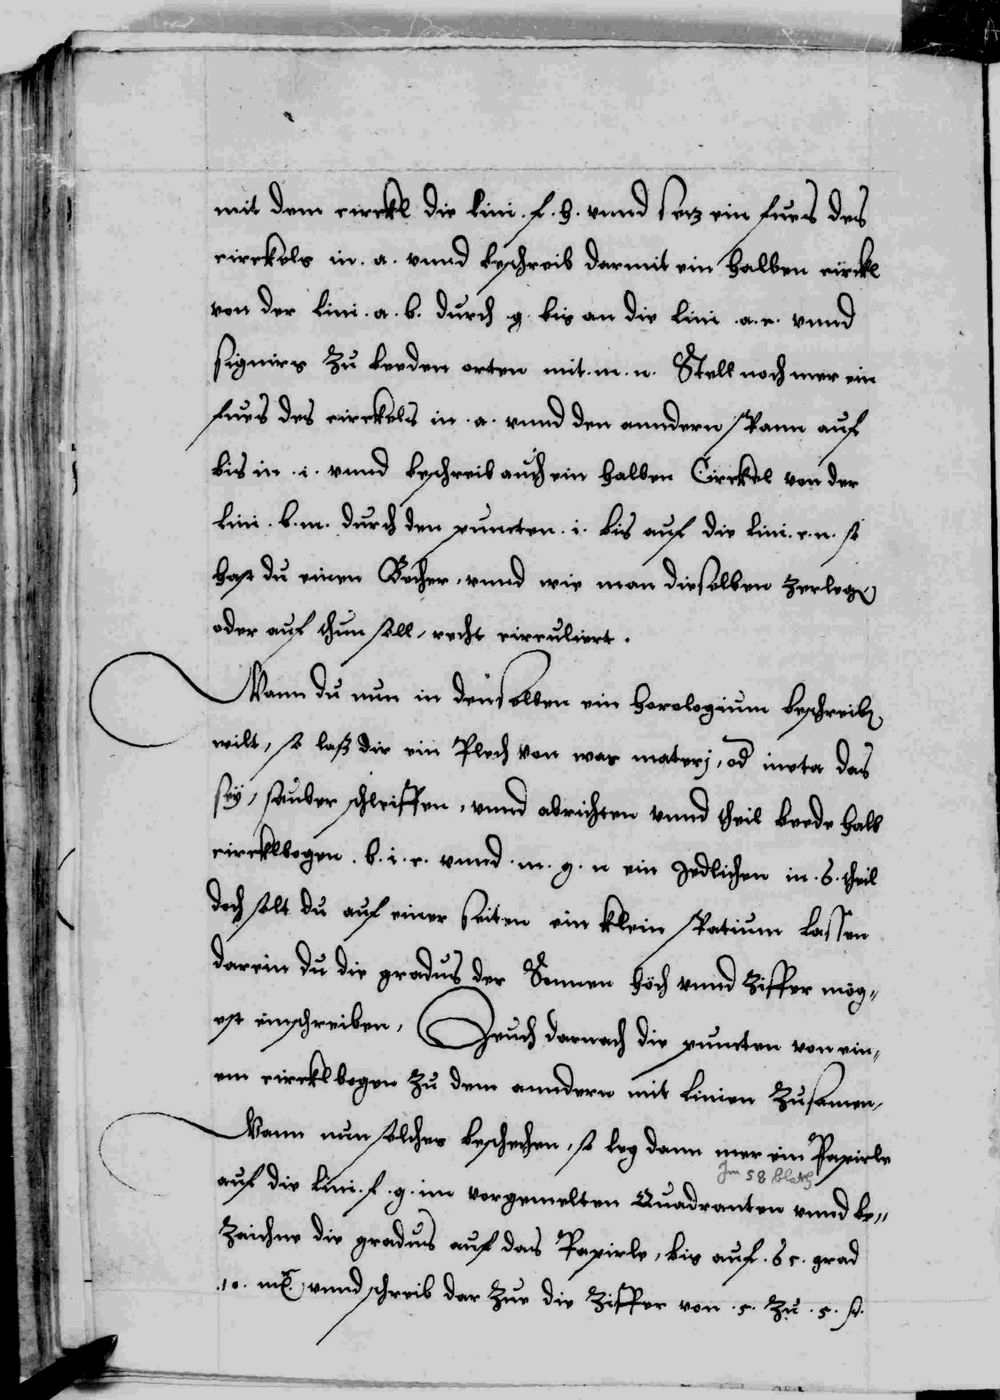 mit dem circkl die lini .f.h. vnnd setz ein fues des
circkels in .a. vnnd beschreib darmit ein halben circkl
von der lini .a.b. durch .g. bis an die lini .a.c. vnnd
signirs zu beeden orten mit .m.n. Stell noch mer ein
fues des circkels in .a. vnnd den anndern spann auf
bis in .i. vnnd beschreib auch ein halben Circkel von der
lini .b.m. durch den puncten .i. bis auf die lini .c.n. so
hast du einen Becher, vnnd wie man dieselben zerlegen
oder auf thun soll, recht circuliert.
Wann du nun in denselben ein horologium beschreiben
wilt, so laß dir ein Plech von was materj, od meta das
sey, sauber schleiffen, vnnd abrichten vnnd theil beede halb
circklbogen .b.i.c. vnnd .m.g.n ein Jedlichen in .6. theil
doch solt du auf einer seiten ein klein spatium lassen
darein du die gradus der Sonnen höch vnnd ziffer mög„
est einschreiben, Zeuch darnach die puncten von ein„
em circklbogen zu dem anndern mit linien zusamen,
Wann nun solches beschechen, so leg dann mer ein Papirle
Jm 58 blath
auf die lini .f.g. im vorgemelten Quadranten vnnd be„
zaichne die gradus auf das Papirle, bis auf .65. grad
.10. mi. vnnd schreib dar zue die ziffer von .5. zu .5. so.